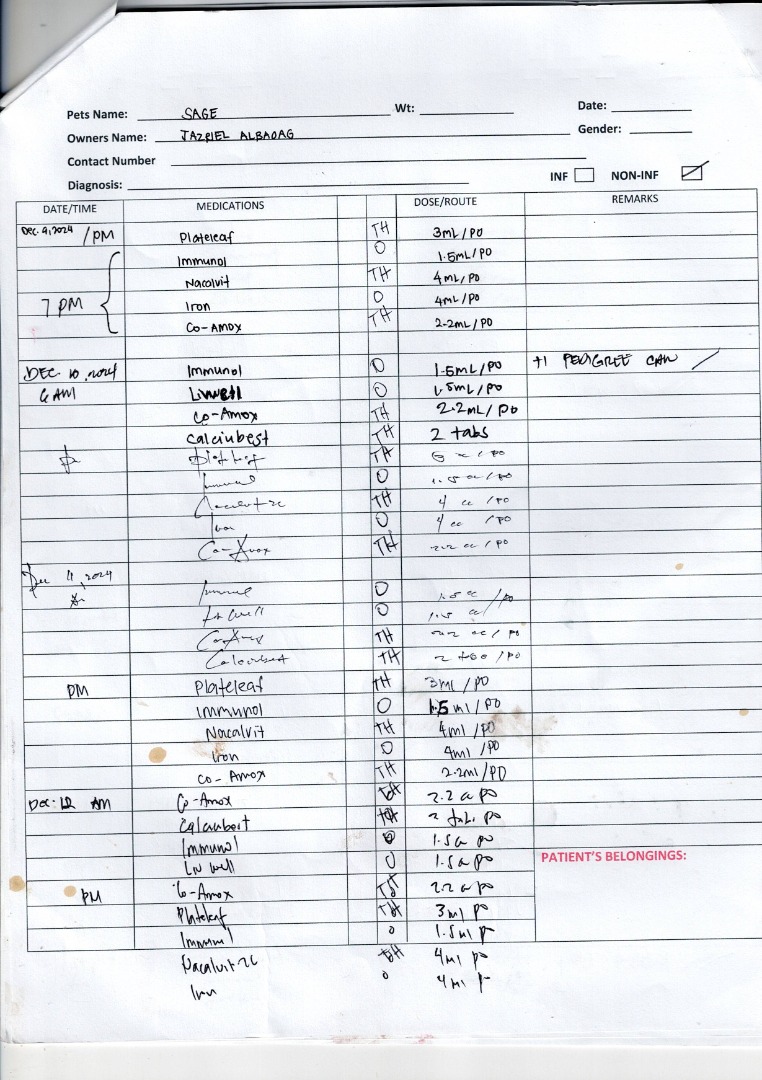 Pets Name: SAGE Wt: Date:
Owners Name: JAZRIEL ALBAOAG Gender:
Contact Number
Diagnosis: INF NON-INF
DATE/TIME MEDICATIONS DOSE/ROUTE REMARKS
Dec. 9, 2024 / PM Plateleaf TH 3mL/PO
Immunol O 1.5mL/PO
Nacalvit TH 4mL/PO
7 PM Iron O 4mL/PO
Co-Amox TH 2.2mL/PO
DEC 10, 2024 Immunol O 1.5mL/PO +1 PEDIGREE CAN
6 AM Livwell O 1.5mL/PO
Co-Amox TH 2.2mL/PO
Calciubest TH 2 tabs
TH /PO
Immunol O 1.5 cc/PO
TH 4 cc /PO
Iron O 4 cc /PO
Co-Amox TH 2.2 cc/PO
Dec 11, 2024
Immunol O 1.5 cc/PO
O 1.5 cc/PO
Co-Amox TH 2.2 cc/PO
Calciubest TH 2 /PO
PM Plateleaf TH 3ml/PO
Immunol O 1.5 ml/PO
Nacalvit TH 4ml/PO
Iron O 4ml/PO
Co-Amox TH 2.2ml/PO
Dec. 12 AM Co-Amox 2.2 po
Calciubest 2 tabs po
Immunol O 1.5 po
Liv well O 1.5 po
PATIENT'S BELONGINGS:
PM Co-Amox 2.2 po
Plateleaf 3ml po
Immunol O 1.5ml
Nacalvit-2C TH 4ml po
Iron O 4ml